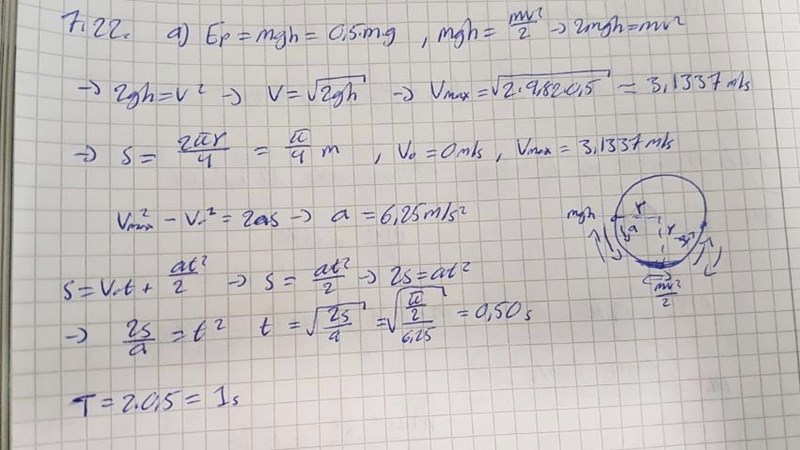 7.22. a) Ep = mgh = 0,5.mg , mgh = mv²/2 → 2mgh = mv²
→ 2gh = v² → v = √2gh → Vmax = √2·9,82·0,5 = 3,1337 m/s
→ s = 2πr/4 = π/4 m , V₀ = 0 m/s , Vmax = 3,1337 m/s
Vmax² - V₀² = 2as → a = 6,25 m/s²
mgh r a r
s = V₀t + at²/2 → s = at²/2 → 2s = at²
mv²/2
→ 2s/a = t² t = √2s/a = √π/2/6,25 = 0,50 s
T = 2.0,5 = 1s